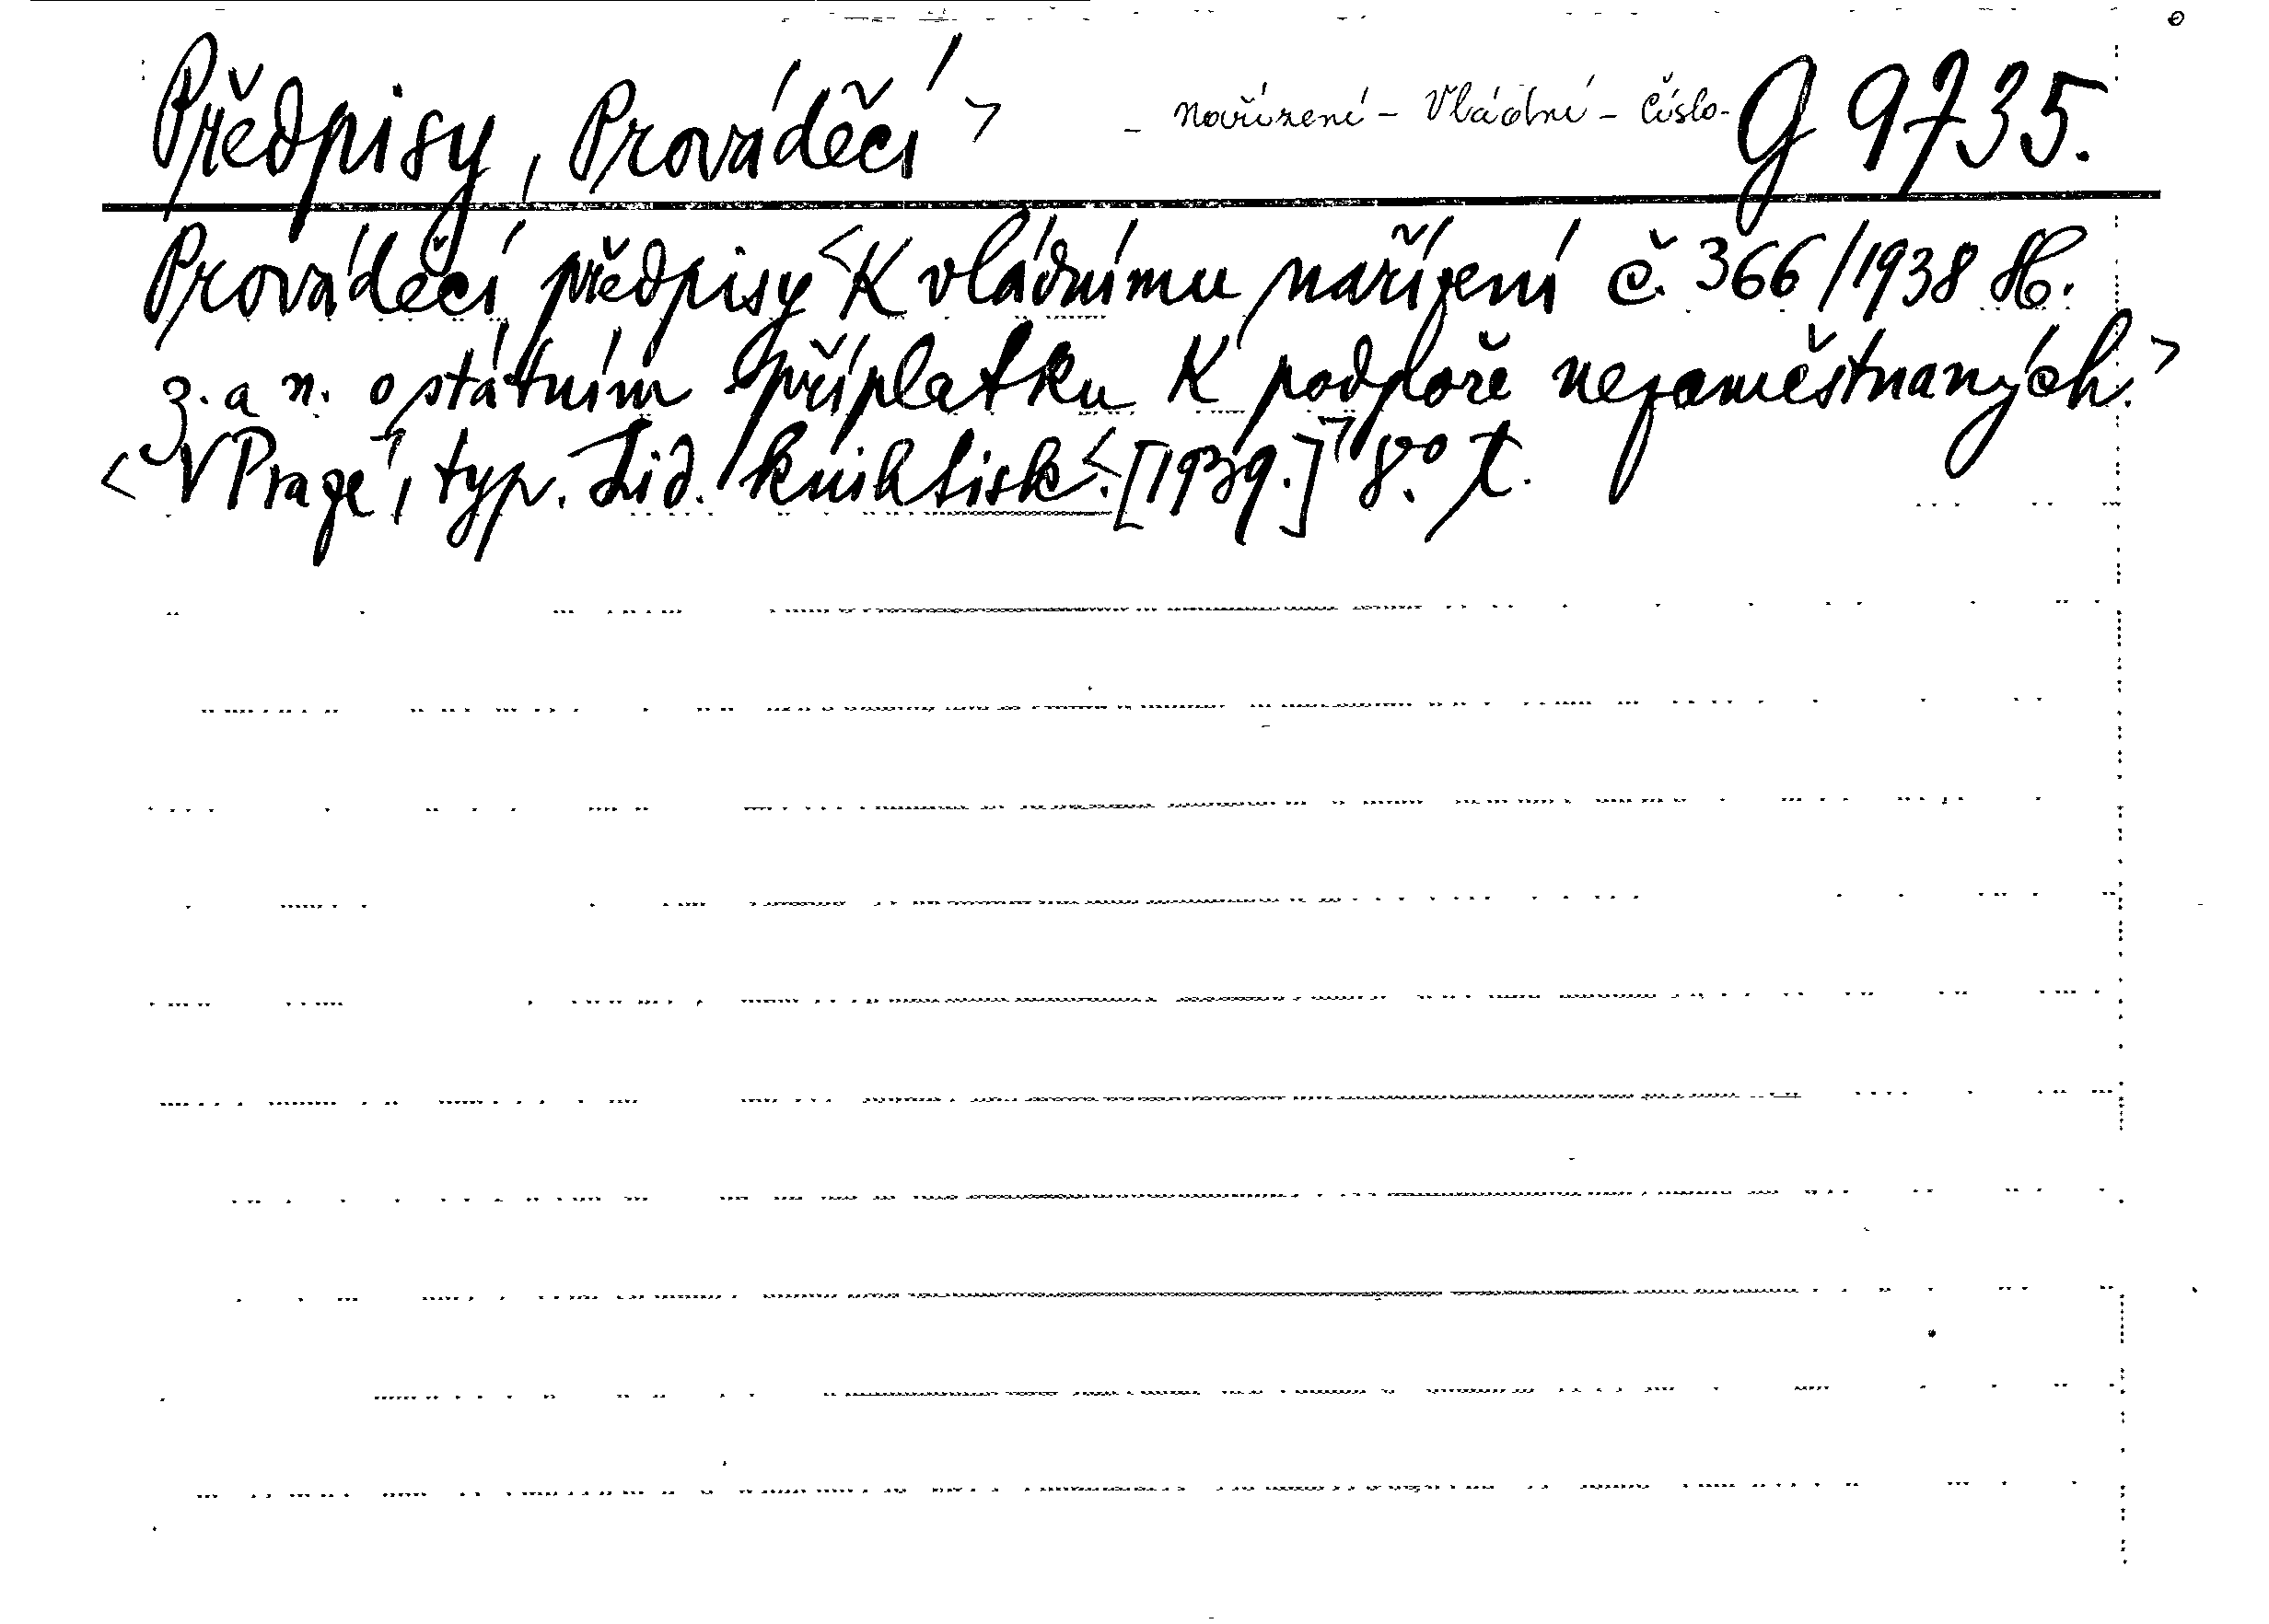 Předpisy, Prováděčí > - nařízení - Vládní - číslo - G 9735.
Prováděčí předpisy < K vládnímu nařízení č. 366/1938 Sb.
z. a n. o státním příplatku K podpoře nezaměstnaných. >
< V Praze, typ. Lid. knihtisk <. [1939.] > 8.º